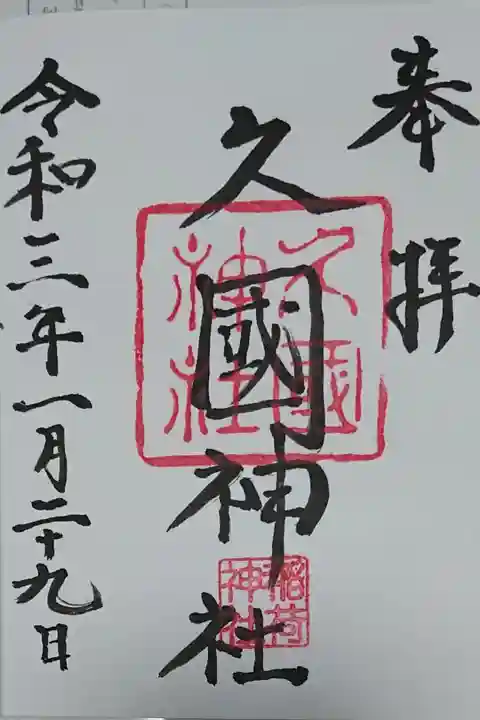 奉拝
久國神社
久國神社
稲荷神社
令和三年一月二十九日